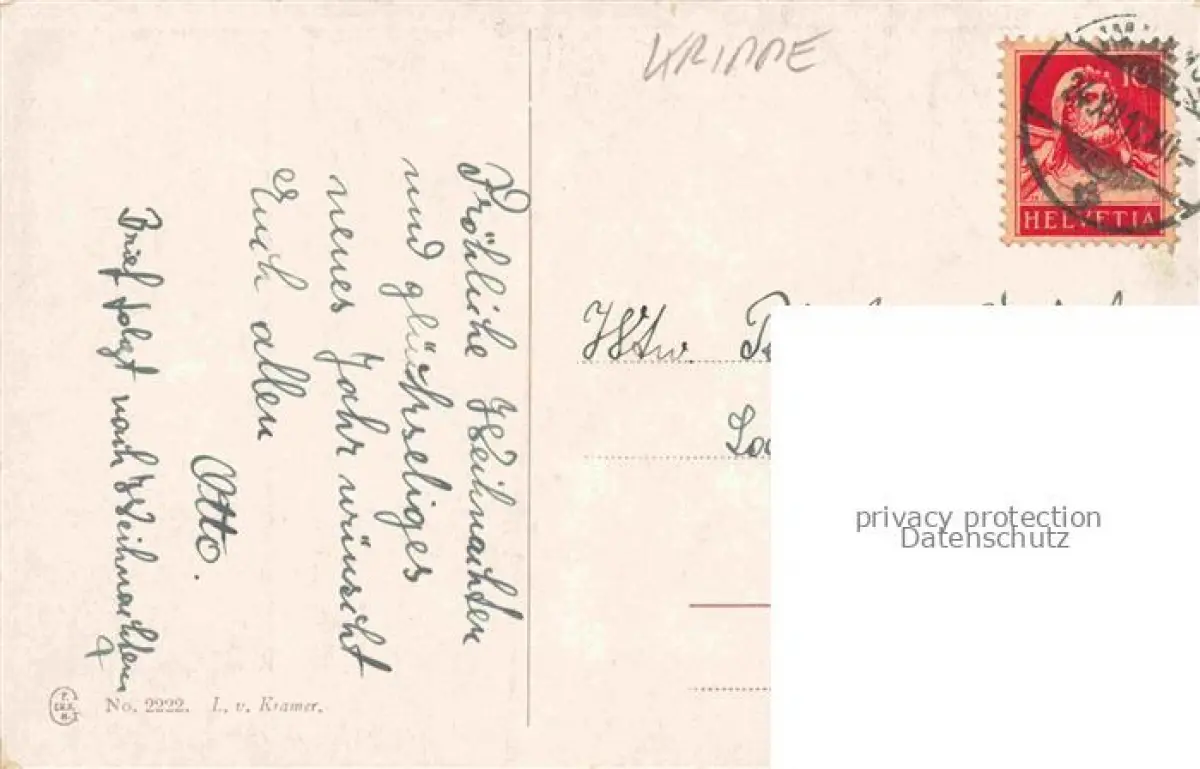 KRIPPE
10
HELVETIA
24.XII.17
Fröhliche Weihnachten
und glückseliges
neues Jahr wünscht
Euch allen
Otto.
Brief folgt nach Weihnachten
Wtw.
privacy protection
Datenschutz
No. 2222. L. v. Kramer.